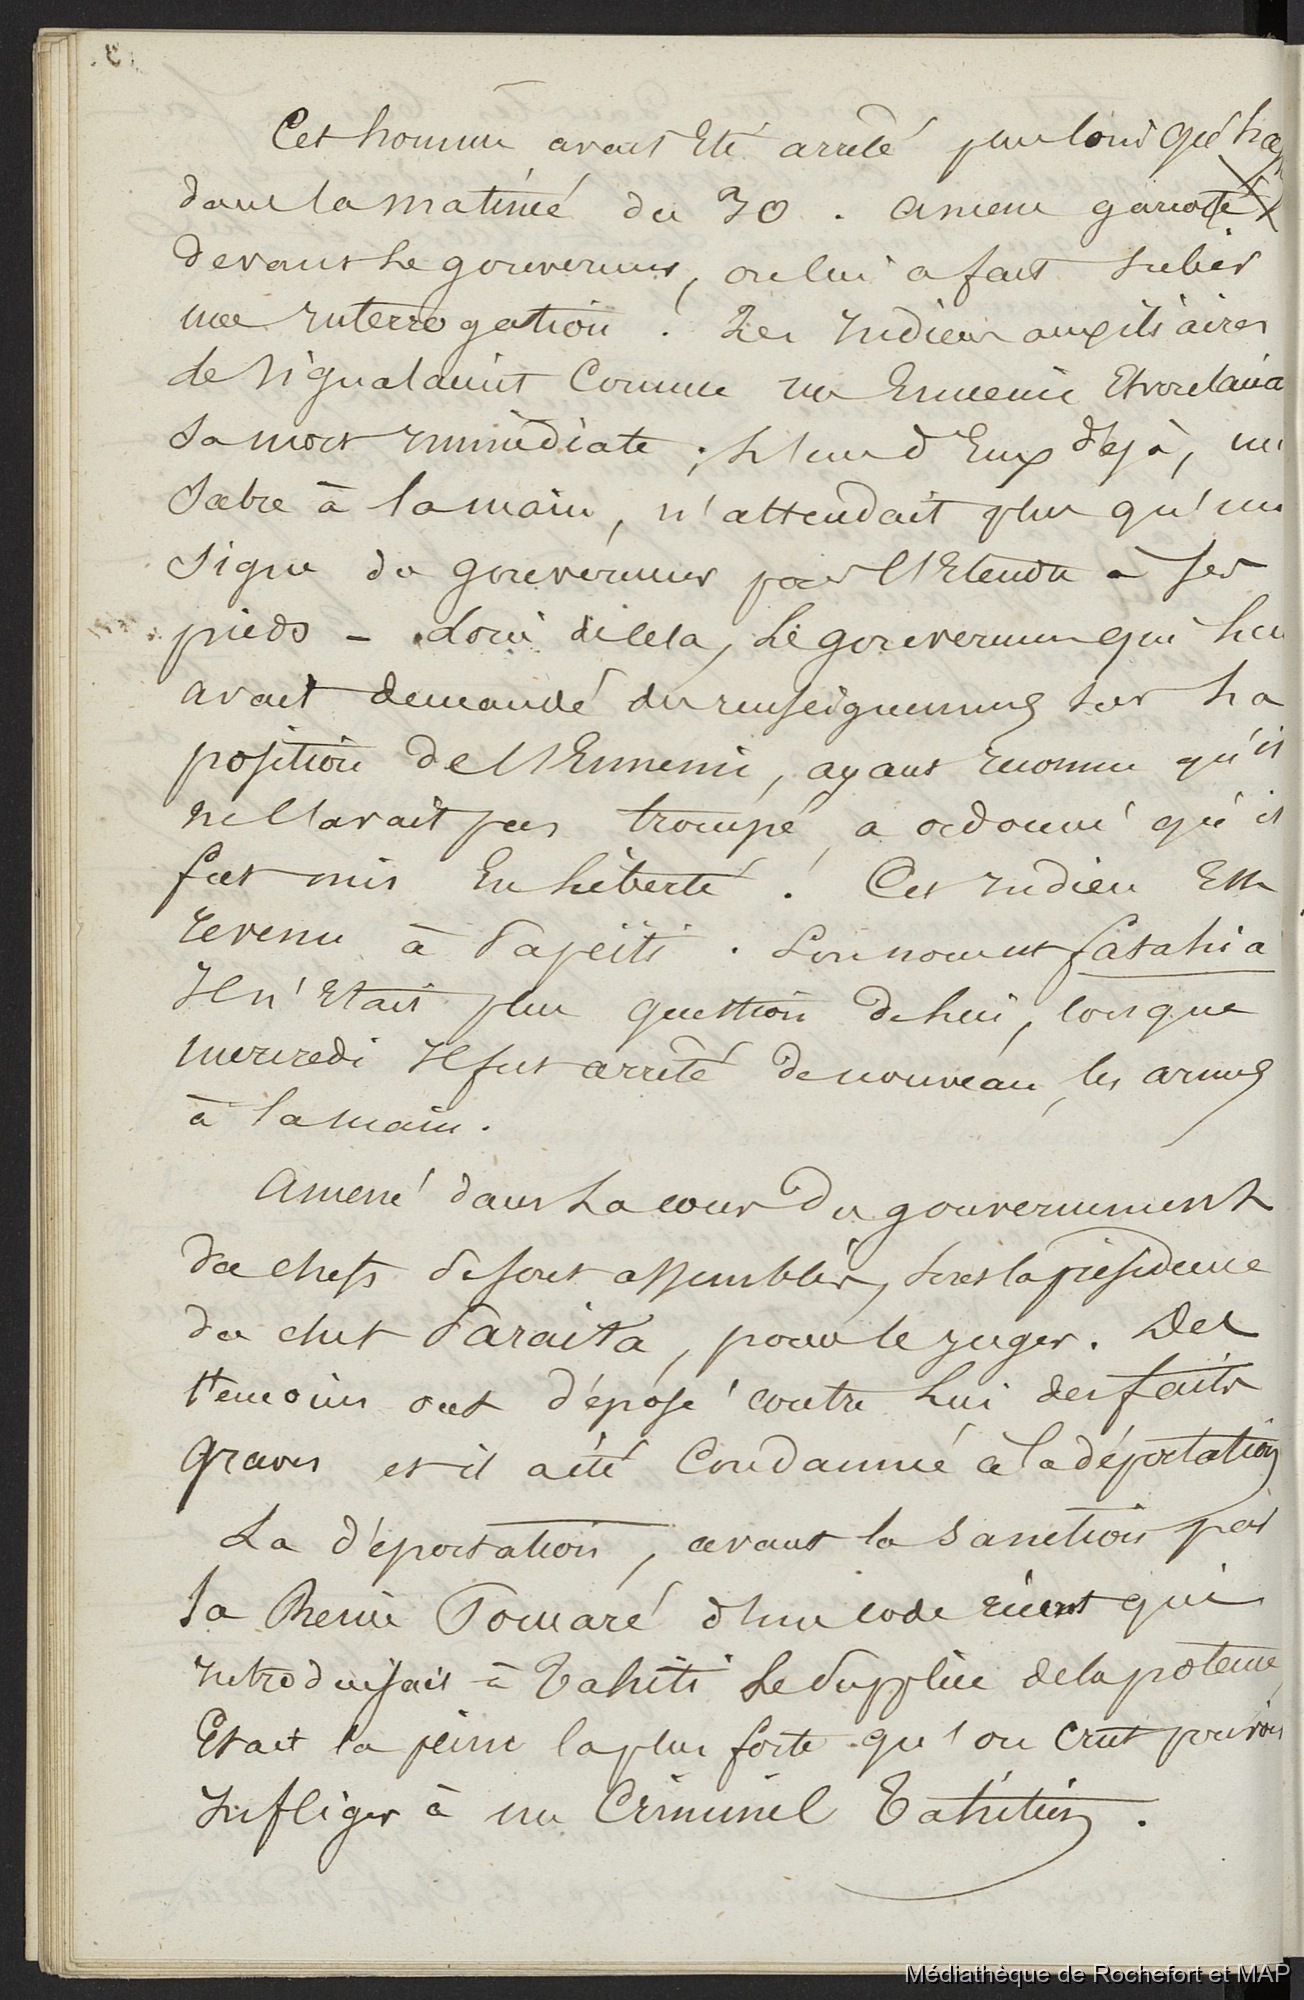 Cet homme avait Eté arrêté plus loin que ha
dans la matinée du 30. Amené garoté
devant Le gouverneur, on lui a fait subir
une Interrogation ! Les Indiens auxiliaires
le signalaient Comme un Ennemi Et voulaient
sa mort Immédiate ; L'un d'Eux déjà, un
sabre à la main, n'attendait plus qu'un
signe du gouverneur pour l'Etendre à ses
pieds - Loin de cela, Le gouverneur qui lui
avait demandé des renseignemens sur La
position de l'Ennemi, ayant reconnu qu'il
ne l'avait pas trompé, a ordonné qu'il
fut mis En Liberté ! Cet Indien Est
revenu à Papeïti. Son nom est fatahia
Il n'Etait plus question de lui, lorsque
mercredi Il fut arrêté de nouveau, les armes
à la main.
Amené dans La cour du gouvernement
des chefs se sont assemblés, sous la présidence
du chef Paraita, pour le juger. Des
témoins ont déposé contre Lui des faits
graves et il a été Condamné à la déportation
La déportation, avant la sanction par
la Reine Pomaré d'un code récent qui
introduisait à Tahiti Le supplice de la potence,
Etait la peine la plus forte qu'on crût pouvoir
Infliger à un Criminel Tahitien.
Médiathèque de Rochefort et MAP